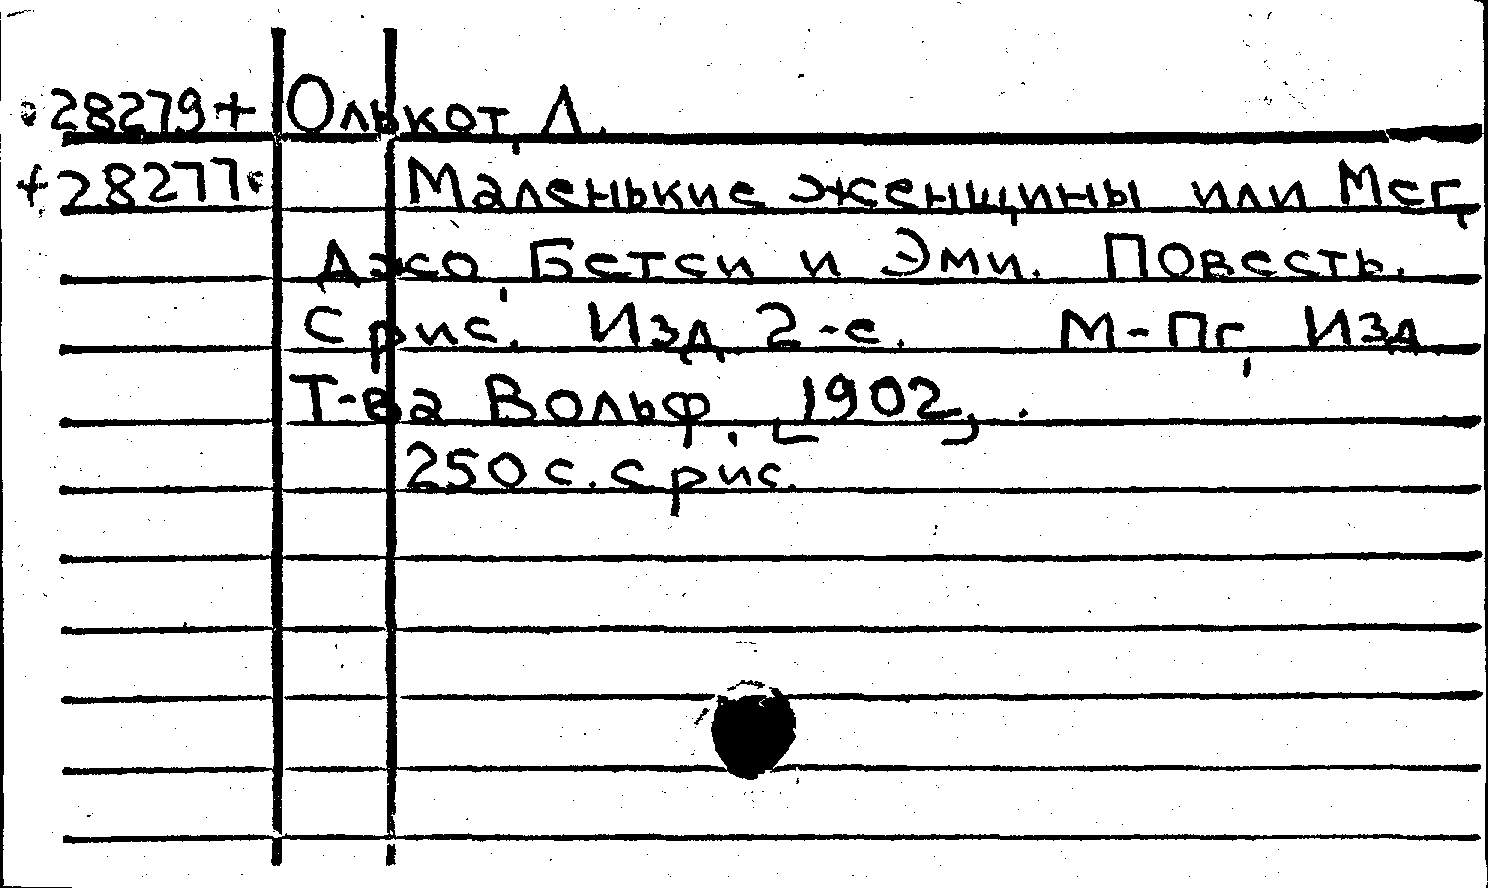 28279+ Олькот, Л.
+28277 Маленькие женщины или Мег,
Джо, Бетси и Эми. Повесть.
С рис. Изд 2-е. М-Пг, Изд
Т-ва Вольф, [1902].
250 с. с рис.